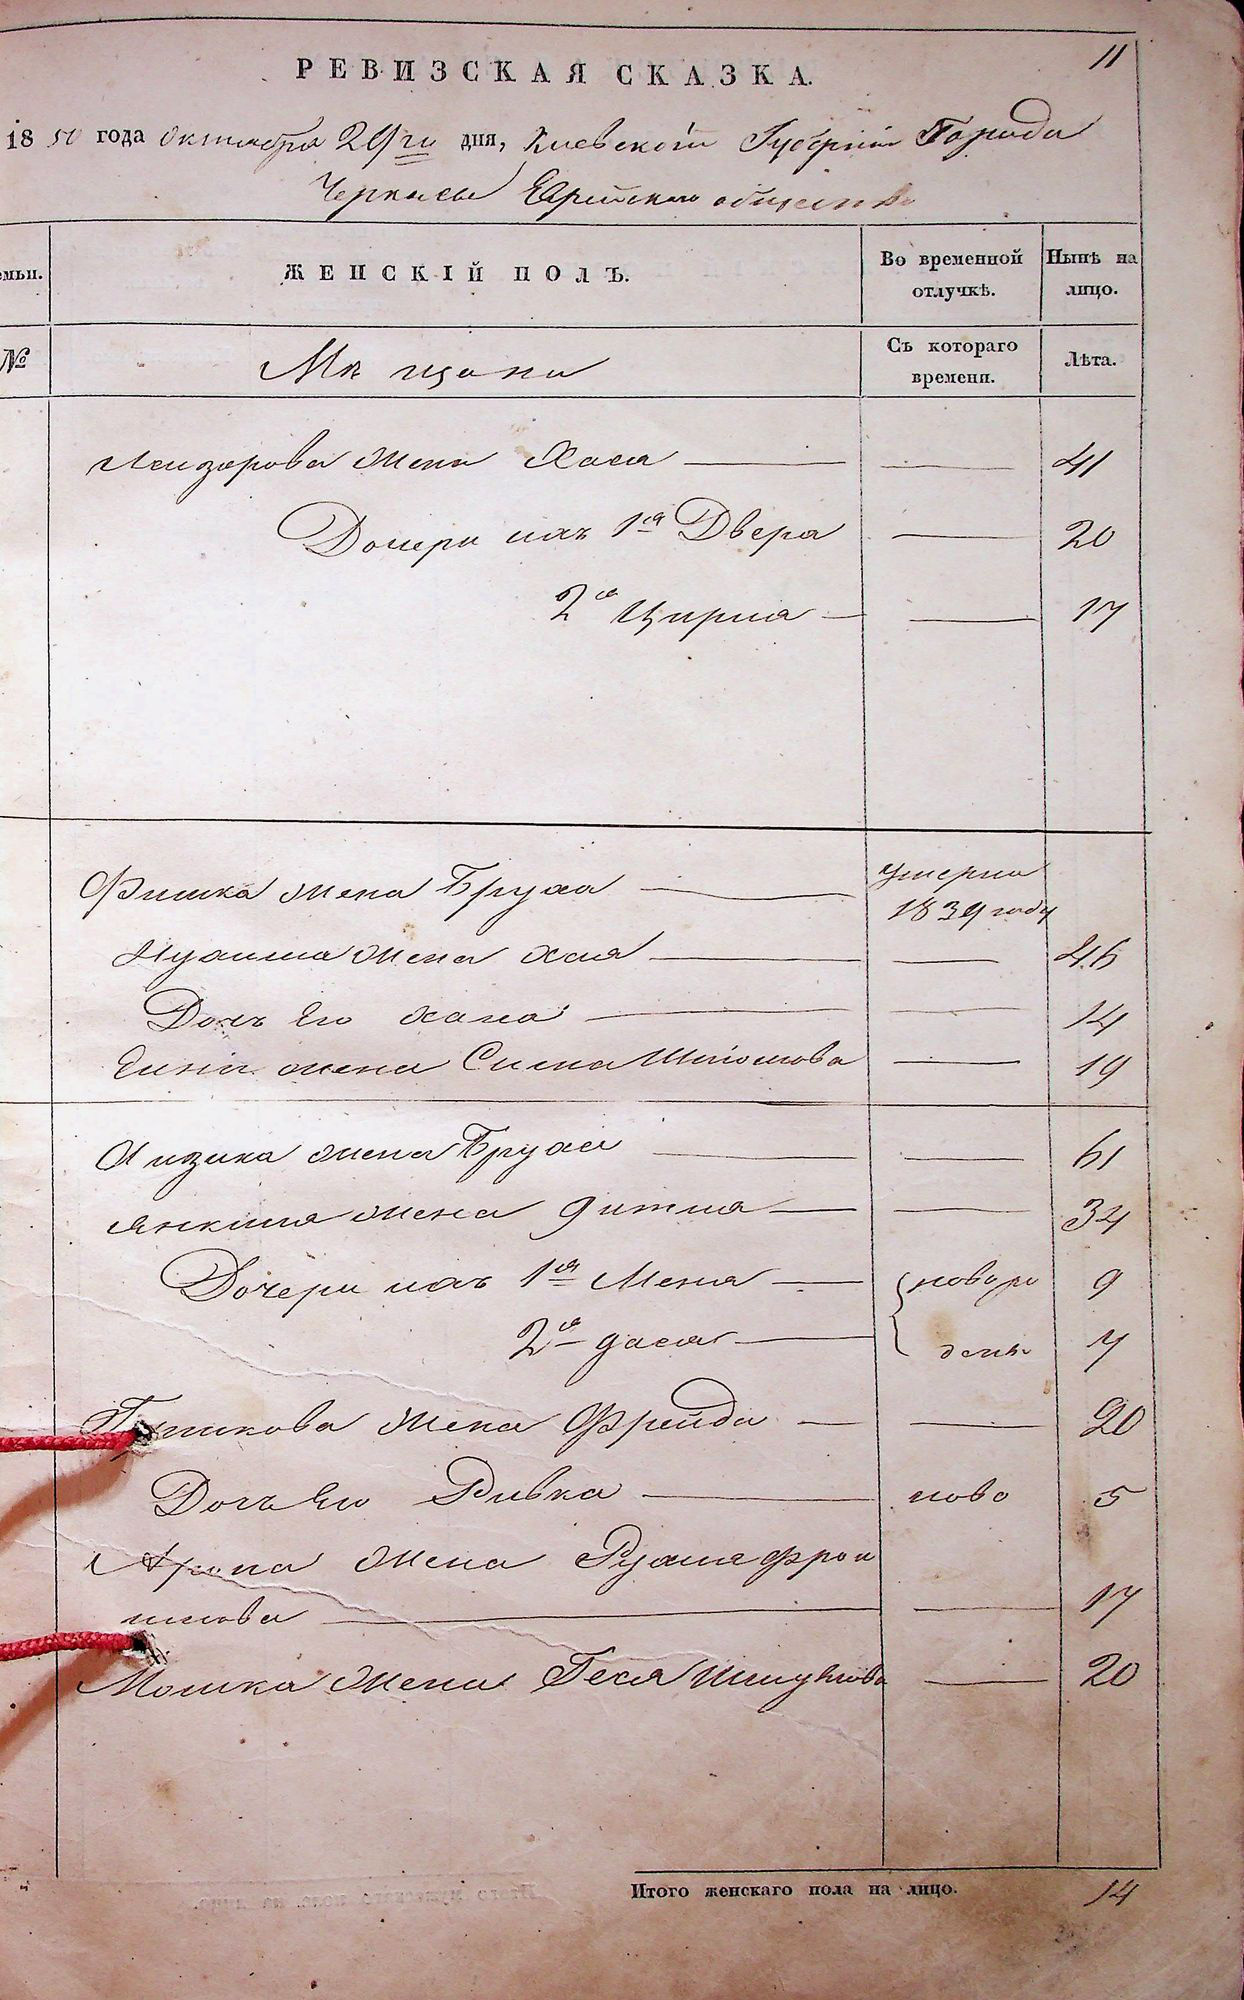 11
РЕВИЗСКАЯ СКАЗКА.
1850 года октября 29го дня, Киевской Губернии Города
Черкасы Еврейского общества
емьи. ЖЕНСКІЙ ПОЛЪ. Во временной отлучкѣ. Нынѣ на лицо.
№ Мѣщане Съ котораго времени. Лѣта.
жена Хася — — 41
Дочери ихъ 1я Двера — 20
2я Цирля — — 17
Фишка жена Бруха — умерла 1839 году
жена Хая — — 46
Дочь Его Хана — — 14
жена Сима — 19
жена Бруха — — 61
Янкеля жена — — 34
Дочери ихъ 1я Меня — новоро 9
2я Дася — ден. 7
жена Фрейда — — 20
Дочь Его Ривка — ново 5
жена Рухля Фрои
мкова — — 17
Мошка жена Геся Шмулкова — 20
Итого женскаго пола на лицо. 14